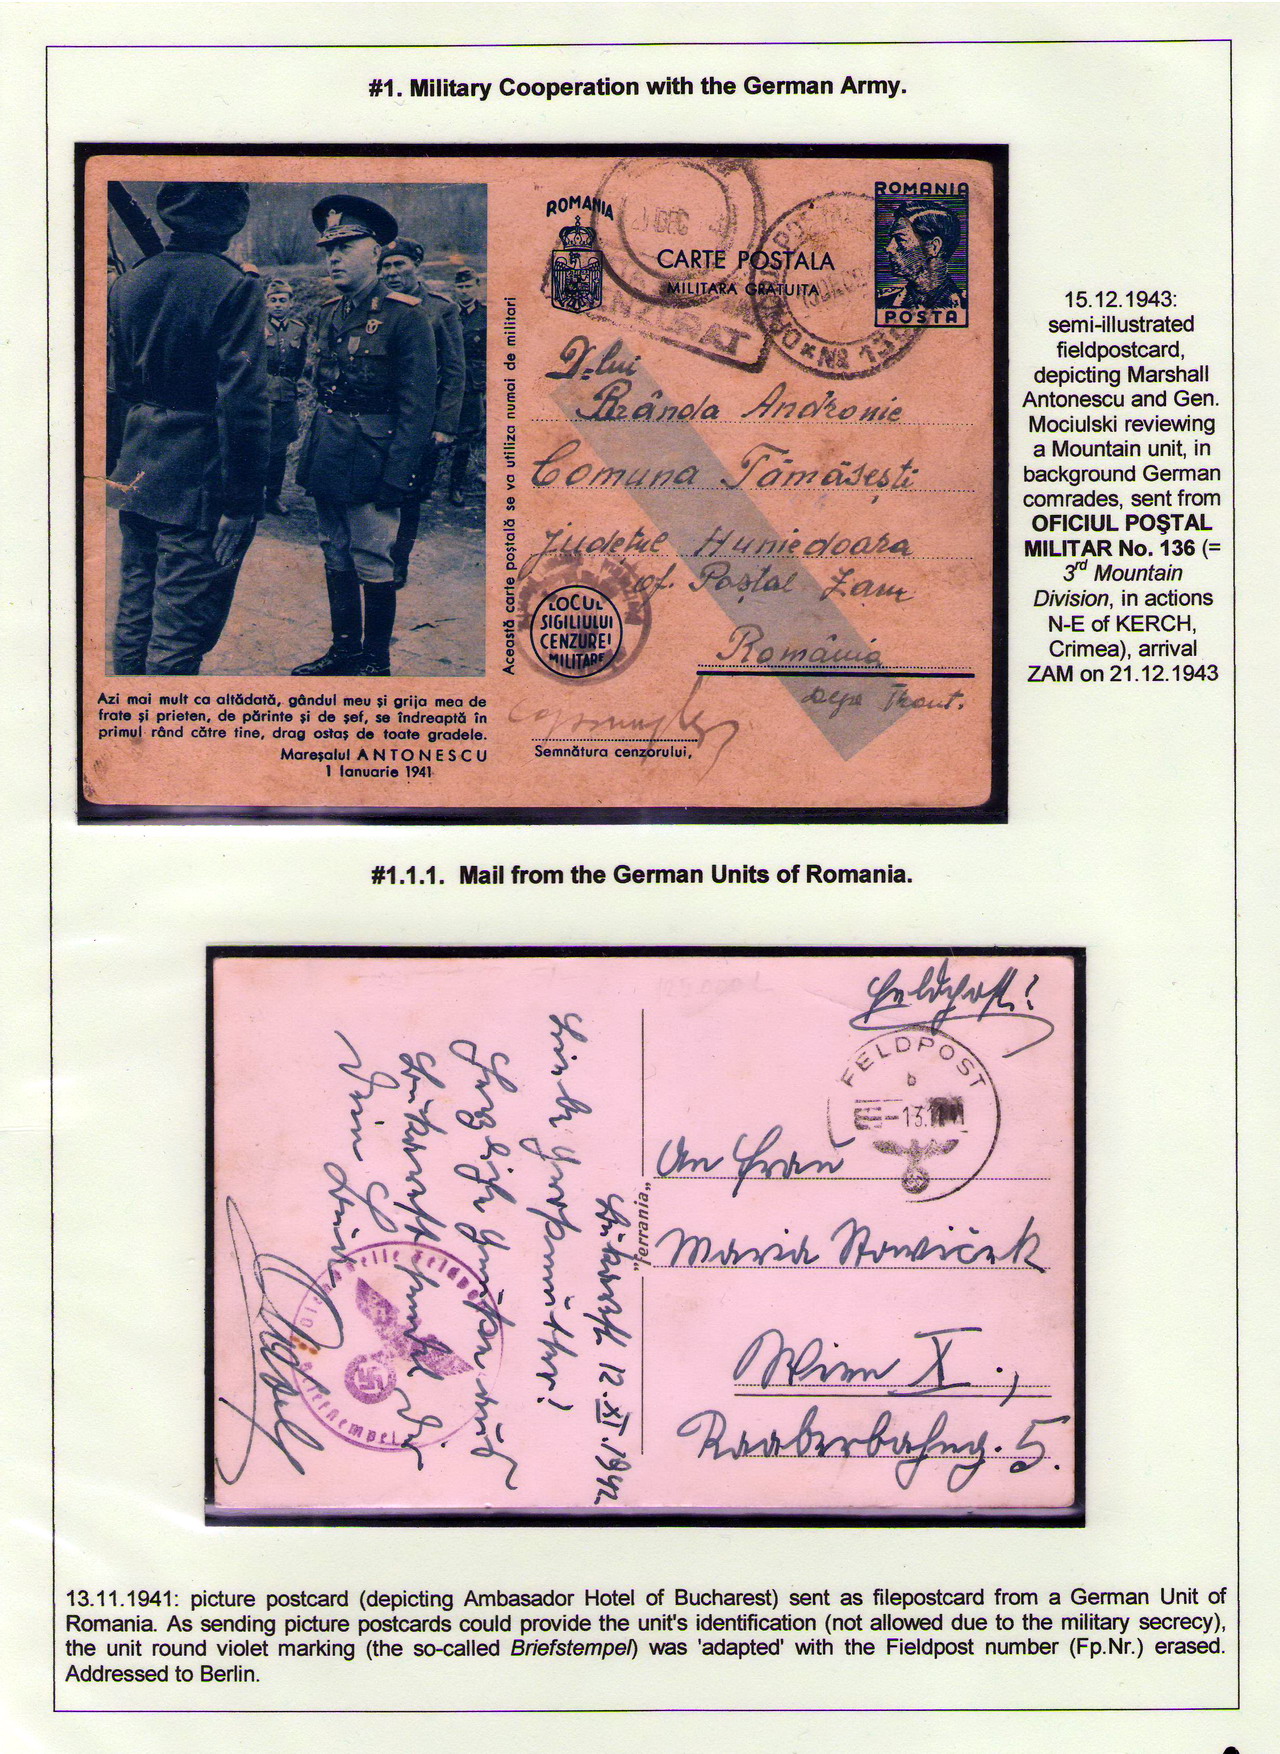 #1. Military Cooperation with the German Army.
ROMANIA
CARTE POSTALA
MILITARA GRATUITA
CENZURAT
ROMANIA
POSTA
DEC
Nº 136
D-lui
Brânda Andronic
Comuna Tămăsești
Județul Huniedoara
of. Poștal Zam
România
LOCUL
SIGILIULUI
CENZUREI
MILITARE
Semnătura cenzorului,
Această carte poștală se va utiliza numai de militari
Azi mai mult ca altădată, gândul meu și grija mea de
frate și prieten, de părinte și de șef, se îndreaptă în
primul rând către tine, drag ostaș de toate gradele.
Mareșalul ANTONESCU
1 Ianuarie 1941
15.12.1943:
semi-illustrated
fieldpostcard,
depicting Marshall
Antonescu and Gen.
Mociulski reviewing
a Mountain unit, in
background German
comrades, sent from
OFICIUL POŞTAL
MILITAR No. 136 (=
3rd Mountain
Division, in actions
N-E of KERCH,
Crimea), arrival
ZAM on 21.12.1943
#1.1.1. Mail from the German Units of Romania.
Feldpost!
FELDPOST
b
-13.11.
An Frau
Maria Nowiček
Wien X.,
Raaberbahng. 5.
"Ferrania"
Bukarest 12.XI.1942
Liebe Großmutter!
Herzliche Grüße aus
Bukarest sendet Dir
Dein
13.11.1941: picture postcard (depicting Ambasador Hotel of Bucharest) sent as filepostcard from a German Unit of
Romania. As sending picture postcards could provide the unit's identification (not allowed due to the military secrecy),
the unit round violet marking (the so-called Briefstempel) was 'adapted' with the Fieldpost number (Fp.Nr.) erased.
Addressed to Berlin.